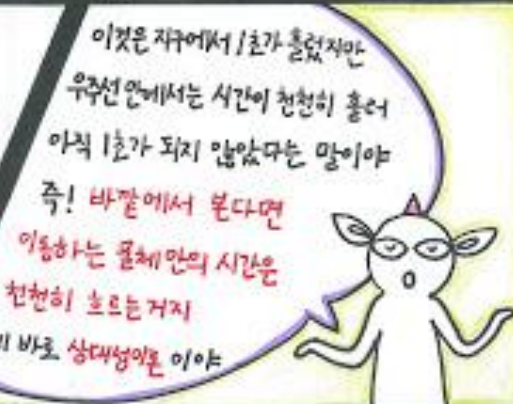 이것은 지구에서 1초가 흘렀지만
우주선 안에서는 시간이 천천히 흘러
아직 1초가 되지 않았다는 말이야
즉! 바깥에서 본다면
이동하는 물체만의 시간은
천천히 흐르는거지
바로 상대성이론 이야